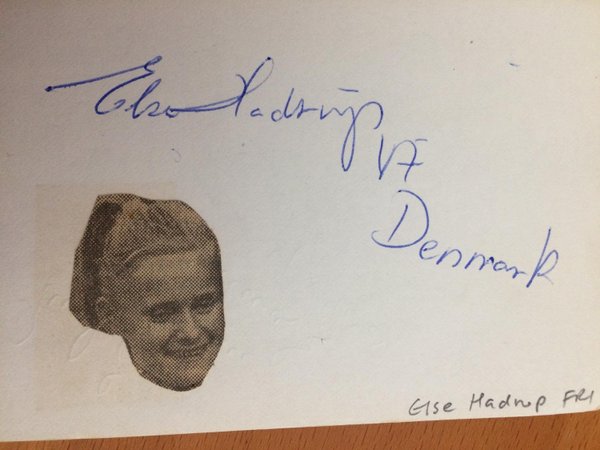 Else Hadrup
Denmark
Else Hadrup FRI